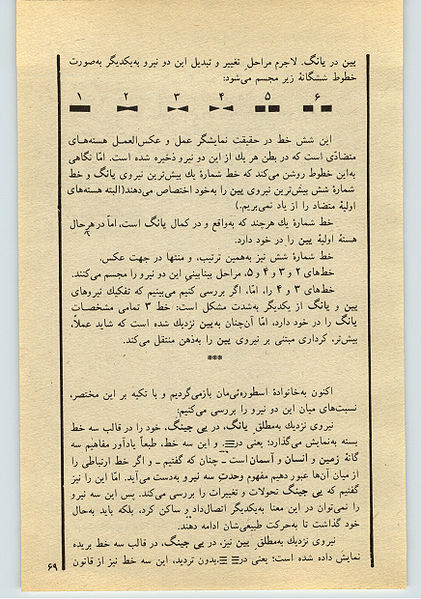 یین در یانگ. لاجرم مراحل تغییر و تبدیل این دو نیرو به‌یکدیگر به‌صورت
خطوط ششگانهٔ زیر مجسم می‌شود:
۱ ۲ ۳ ۴ ۵ ۶
این شش خط در حقیقت نمایشگر عمل و عکس‌العمل هسته‌های
متضادّی است که در بطن هر یك از این دو نیرو ذخیره شده است. امّا نگاهی
به‌این خطوط روشن می‌کند که خط شمارهٔ یك بیش‌ترین نیروی یانگ و خط
شمارهٔ شش بیش‌ترین نیروی یین را به‌خود اختصاص می‌دهند(البته هسته‌های
اولیهٔ متضاد را از یاد نمی‌بریم.)
خط شمارهٔ یك هرچند که به‌واقع و در کمال یانگ است، امّا در هرحال
هستهٔ اولیهٔ یین را در خود دارد.
خط شمارهٔ شش نیز به‌همین ترتیب، و منتها در جهت عکس.
خط‌های ۲ و ۳ و ۴ و ۵، مراحل بینابینی این دو نیرو را مجسم می‌کنند.
خط‌های ۳ و ۴ را، امّا، اگر بررسی کنیم می‌بینیم که تفکیك نیروهای
یین و یانگ از یکدیگر به‌شدت مشکل است: خط ۳ تمامی مشخصات
یانگ را در خود دارد، امّا آن‌چنان به‌یین نزدیك شده است که شاید عملاً،
بیش‌تر، کرداری مبتنی بر نیروی یین را به‌ذهن منتقل می‌کند.
***
اکنون به‌خانوادهٔ اسطوره‌ئی‌مان بازمی‌گردیم و با تکیه بر این مختصر،
نسبت‌های میان این دو نیرو را بررسی می‌کنیم:
نیروی نزدیك به‌مطلق یانگ، در یی جینگ، خود را در قالب سه خط
بسته به‌نمایش می‌گذارد؛ یعنی در☰، و این سه خط، طبعاً یادآور مفاهیم سه
گانهٔ زمین و انسان و آسمان است ـ چنان که گفتیم ـ و اگر خط ارتباطی را
از میان آن‌ها عبور دهیم مفهوم وحدتِ سه نیرو به‌دست می‌آید. امّا این را نیز
گفتیم که یی جینگ تحولات و تغییرات را بررسی می‌کند. پس این سه نیرو
را نمی‌توان در این معنا به‌یکدیگر اتصال‌داد و ساکن کرد، بلکه باید به‌حال
خود گذاشت تا به‌حرکت طبیعی‌شان ادامه دهند.
نیروی نزدیك به‌مطلق یین نیز، در یی جینگ، در قالب سه خط بریده
نمایش داده شده است؛ یعنی در☷.بدون تردید، این سه خط نیز از قانون
۶۹